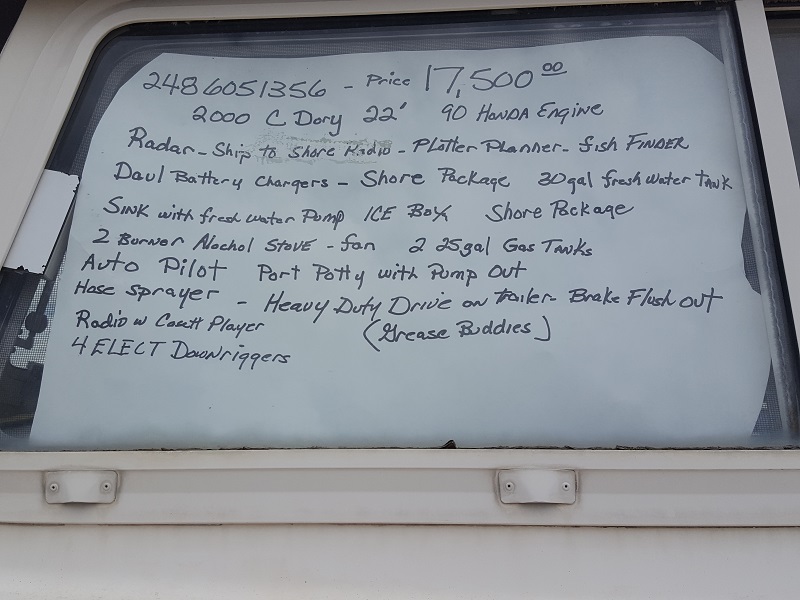 2486051356 - Price 17,500.00
2000 C Dory 22' 90 HONDA Engine
Radar - Ship to Shore Radio - Plotter Planner - fish FINDER
Daul Battery Chargers - Shore Package 30gal fresh water TANK
SINK with fresh water Pump ICE BOX Shore Package
2 Burner Alochol Stove - fan 2 25gal Gas TANKs
Auto Pilot Port Potty with Pump Out
Hose sprayer - Heavy Duty Drive on trailer - Brake Flush out
Radio w Casett Player (Grease Buddies)
4 ELECT Downriggers